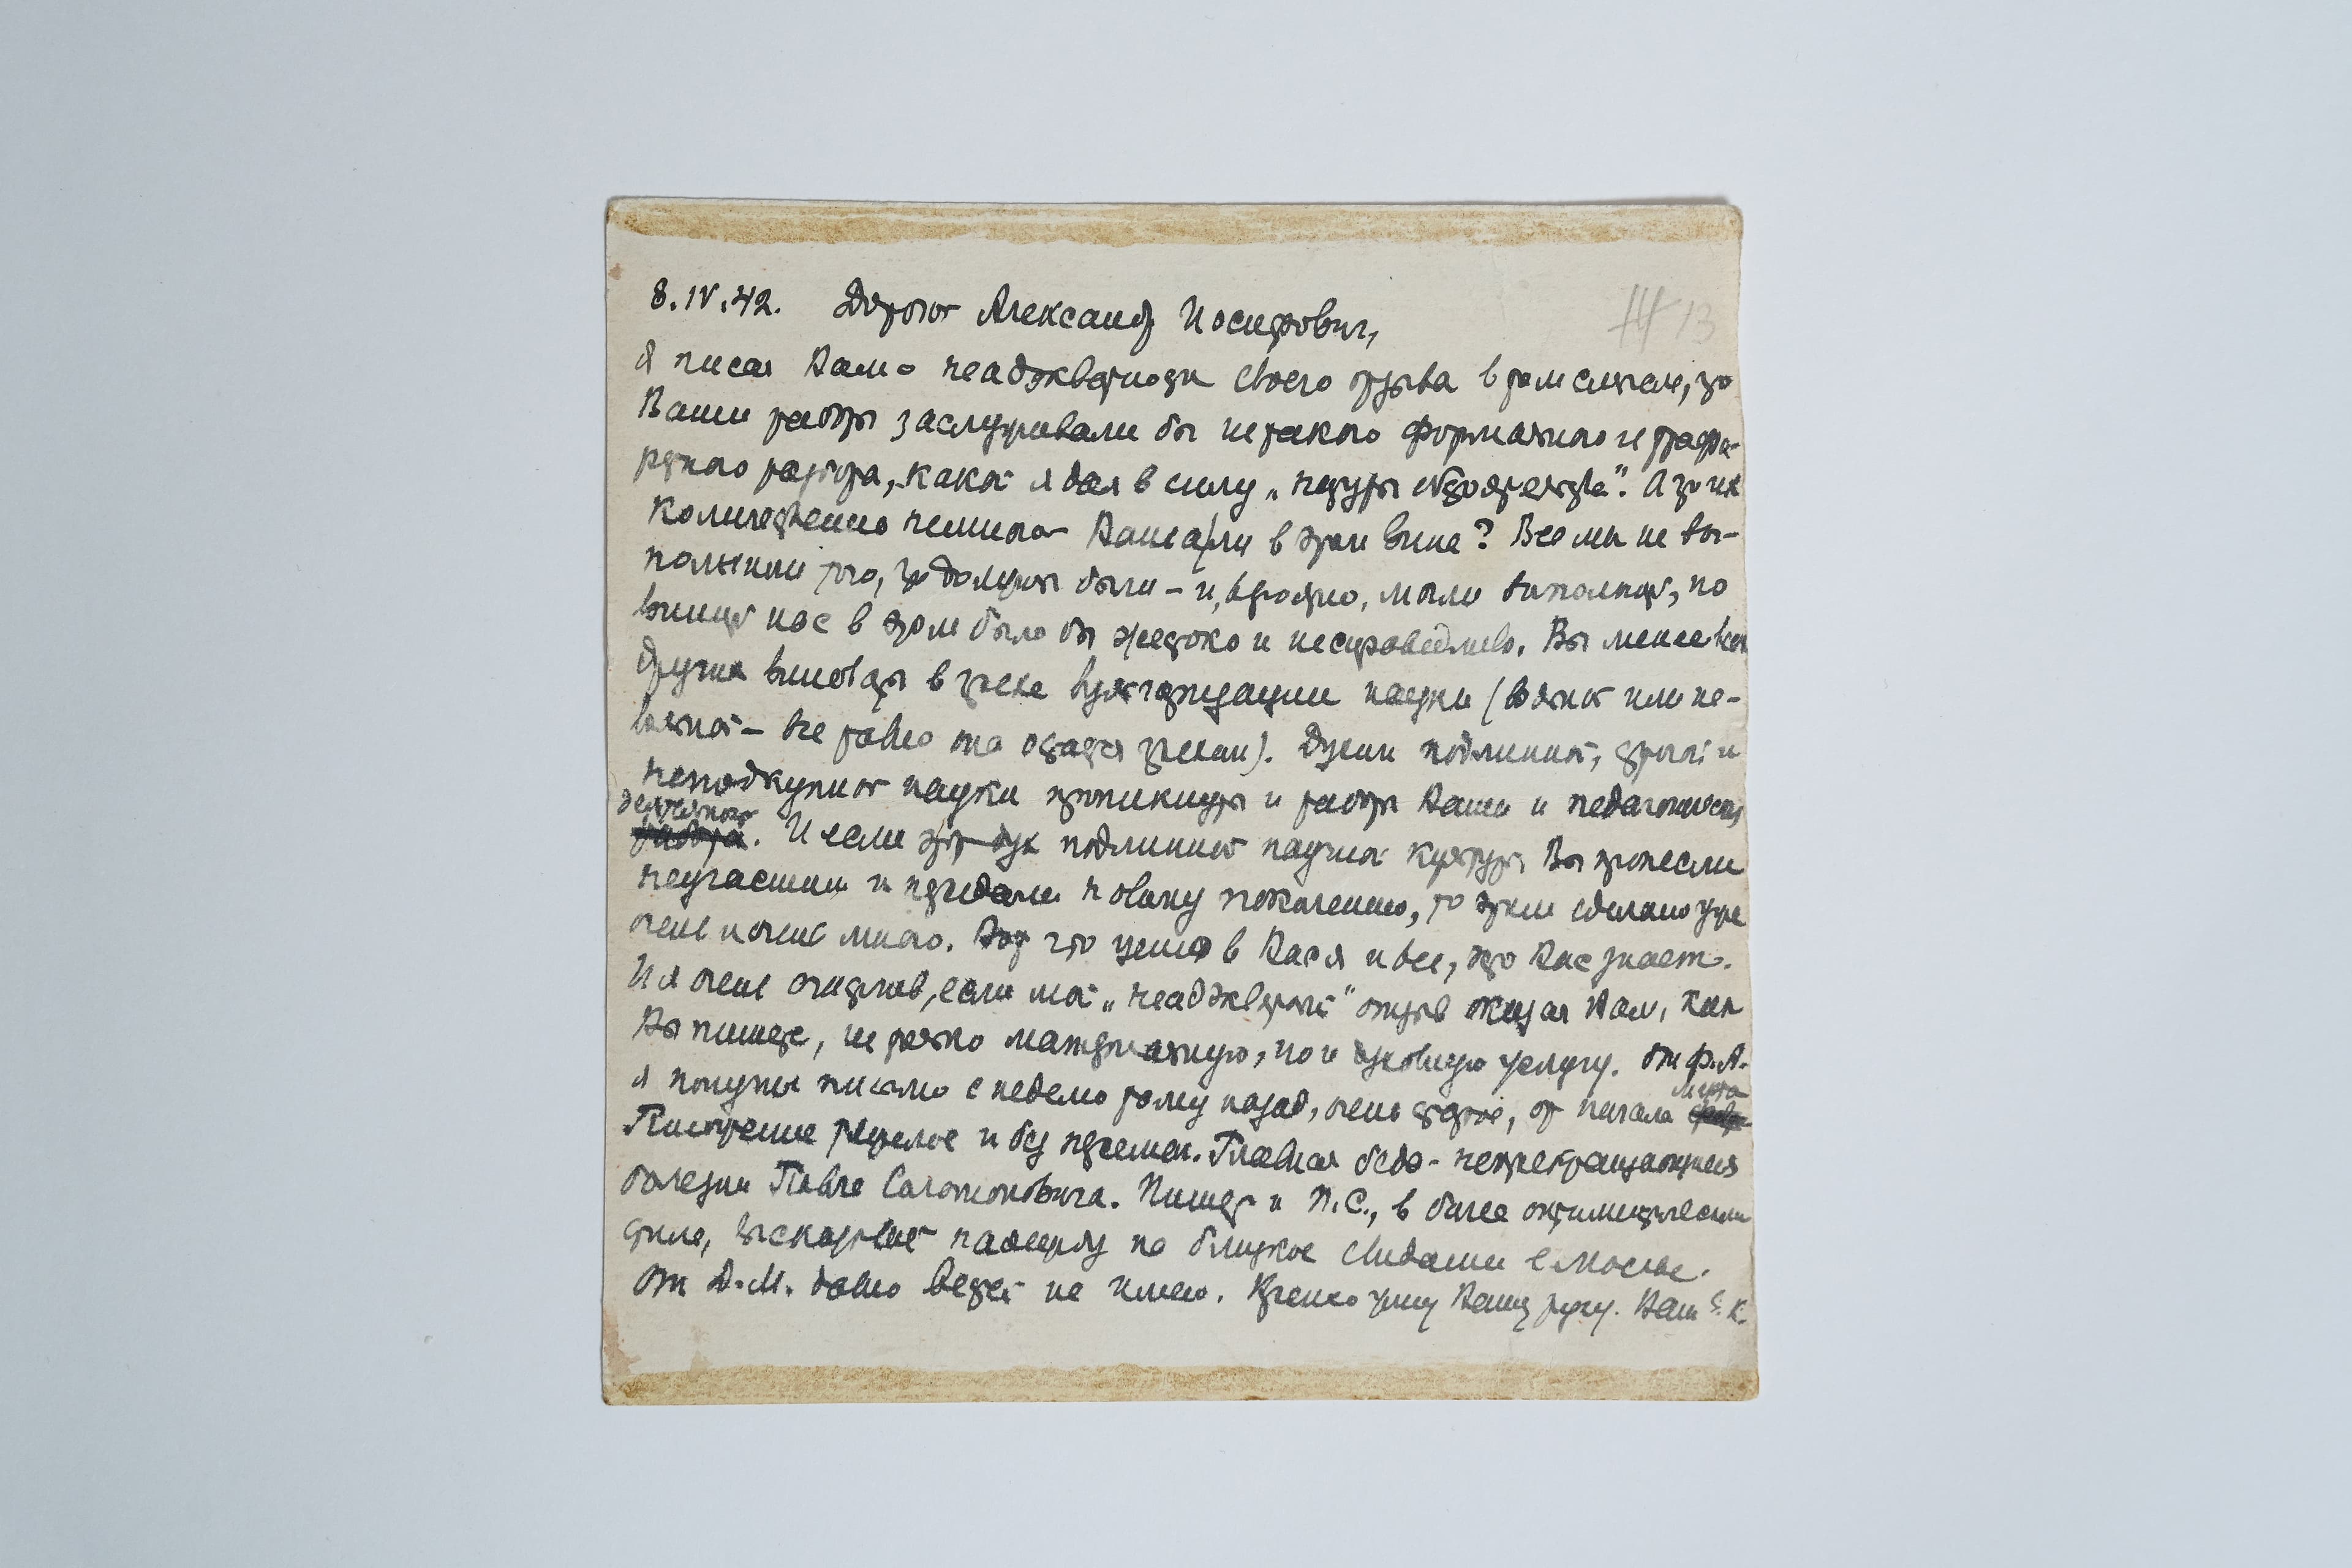 8.IV.42. Дорогой Александр Иосифович,
13
я писал Вам о неадэкватности своего отзыва в том смысле, что
Ваши работы заслуживали бы не такого формального и трафа-
ретного разбора, какой я дал в силу „натуры" А что их
количественно немного — Ваша ли в этом вина? Все мы не вы-
полнили того, что должны были — и, вероятно, могли выполнить, но
винить нас в этом было бы жестоко и несправедливо. Вы менее всех
других виноваты в грехе вульгаризации науки (вольной или не-
вольной — все равно она остается грехом). Духом подлинной, строгой и
неподкупной науки проникнуты и работы Ваши и педагогическая
деятельность. И если этот дух подлинной научной культуры Вы пронесли
неугасшим и передали новому поколению, то этим сделано уже
очень и очень много. Вот что ценю в Вас я и все, кто Вас знает.
И я очень счастлив, если мой „неадэкватный" отзыв оказал Вам, как
Вы пишете, не только материальную, но и духовную услугу. От Ф.А.
я получил письмо с неделю тому назад, очень старое, от начала марта
Настроение тяжелое и без перемен. Главная беда — непрекращающиеся
болезни Павла Соломоновича. Пишет и П.С., в более оптимистическом
стиле, высказывает надежду на близкое свидание в Москве.
От Д.М. давно вестей не имею. Крепко жму Вашу руку. Ваш С.К.